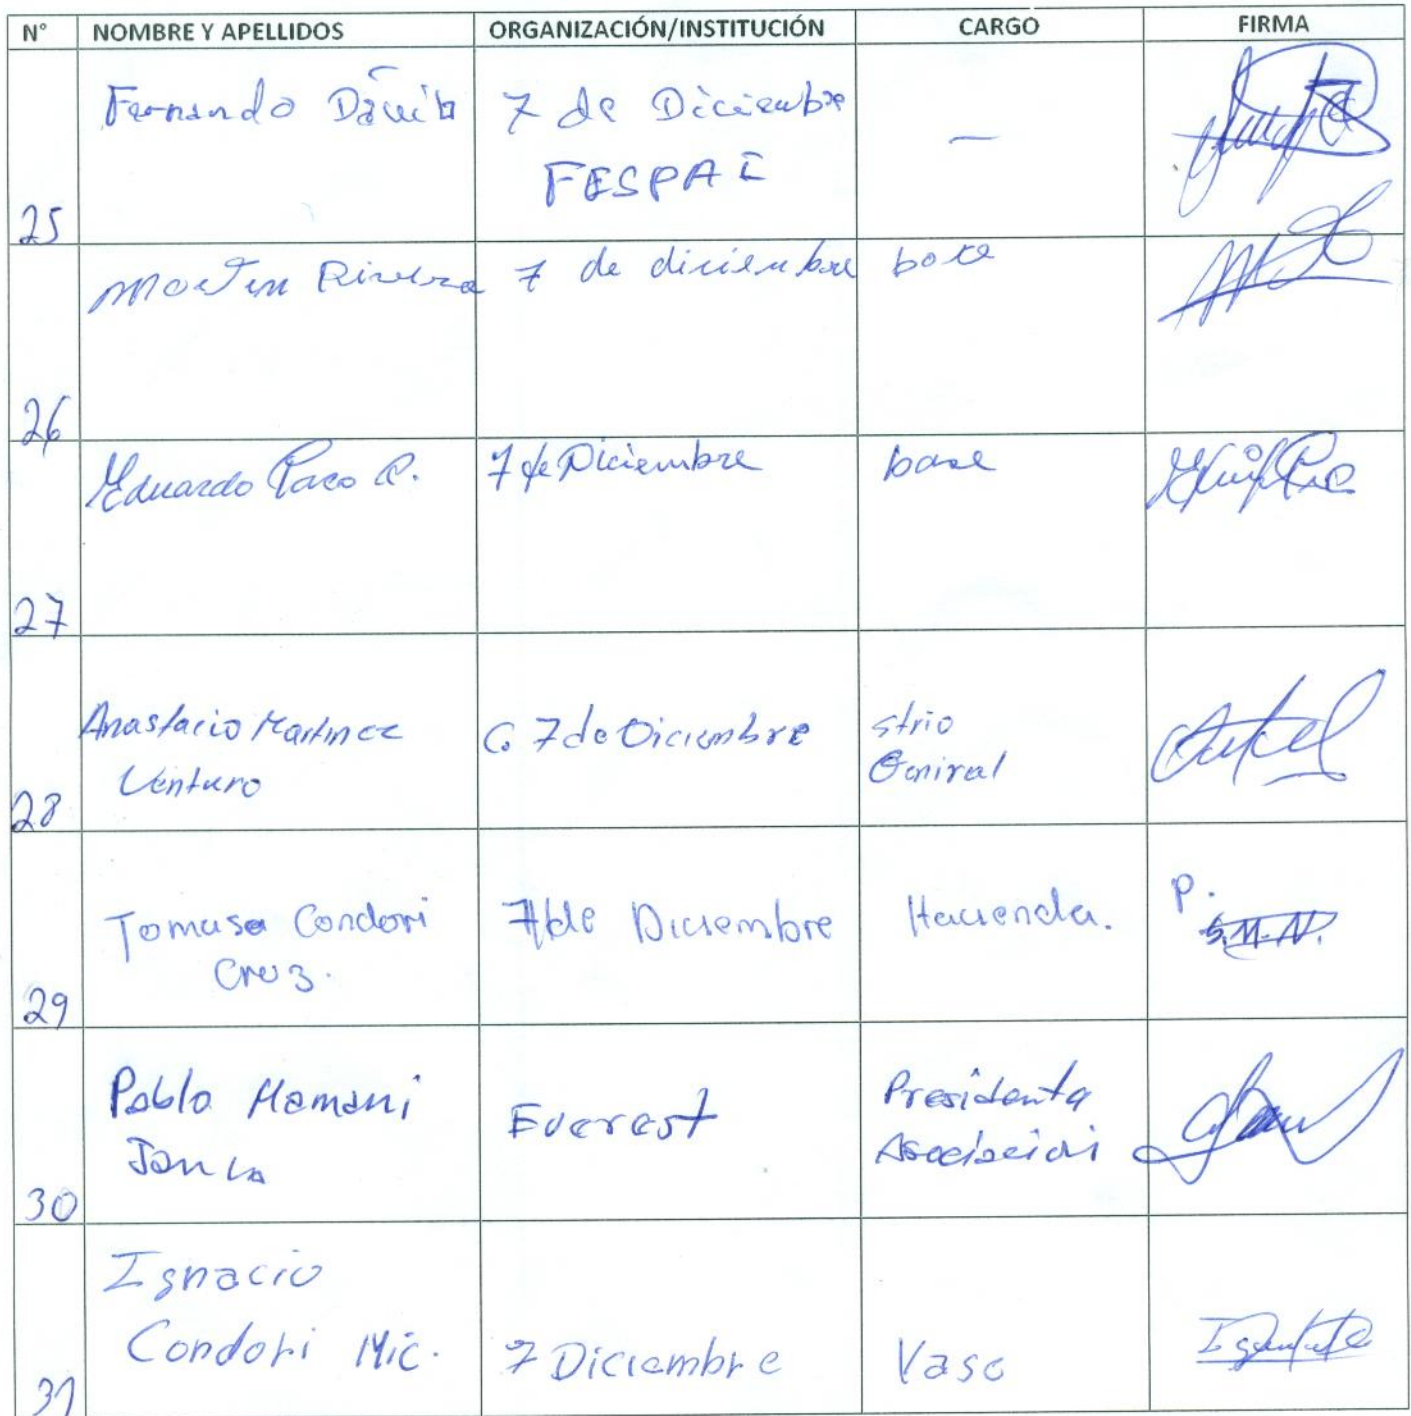 N° NOMBRE Y APELLIDOS ORGANIZACIÓN/INSTITUCIÓN CARGO FIRMA
Fernando 7 de Diciembre —
FESPAI
25
Martin Rivera 7 de diciembre base
26
Eduardo Paco P. 7 de Diciembre base
27
Anastacio Martinez C. 7 de Diciembre strio
Venturo General
28
Tomasa Condori 7 de Diciembre Hacienda. P.
Cruz. S.M.N.
29
Pablo Mamani Everest Presidenta
Asociacion
30
Ignacio
Condori Mic. 7 Diciembre Vaso
31